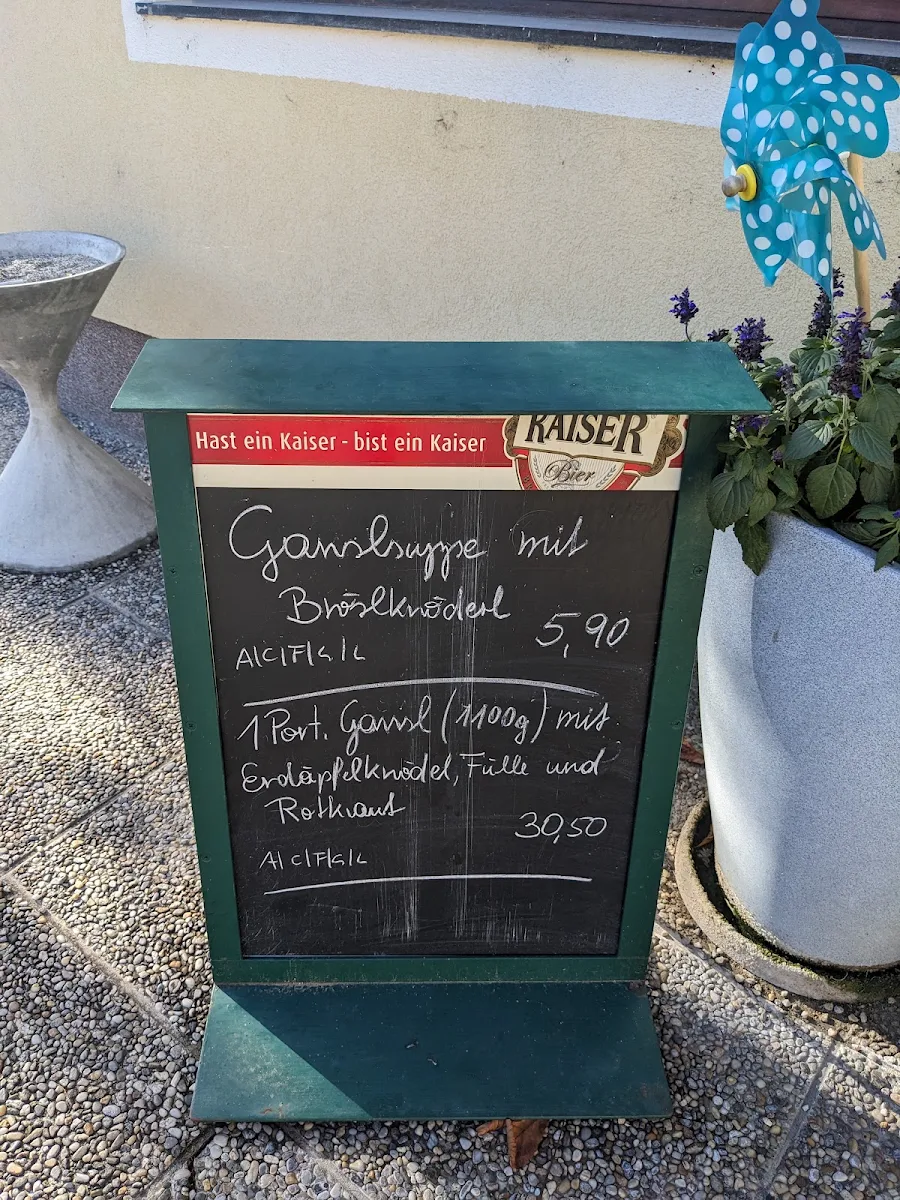 Hast ein Kaiser - bist ein Kaiser
KAISER
Bier
Ganslsuppe mit
Bröslknöderl
A/C/F/G/L
5,90
1 Port. Gansl (1100g) mit
Erdäpfelknödel, Fülle und
Rotkraut
30,50
A/C/F/G/L